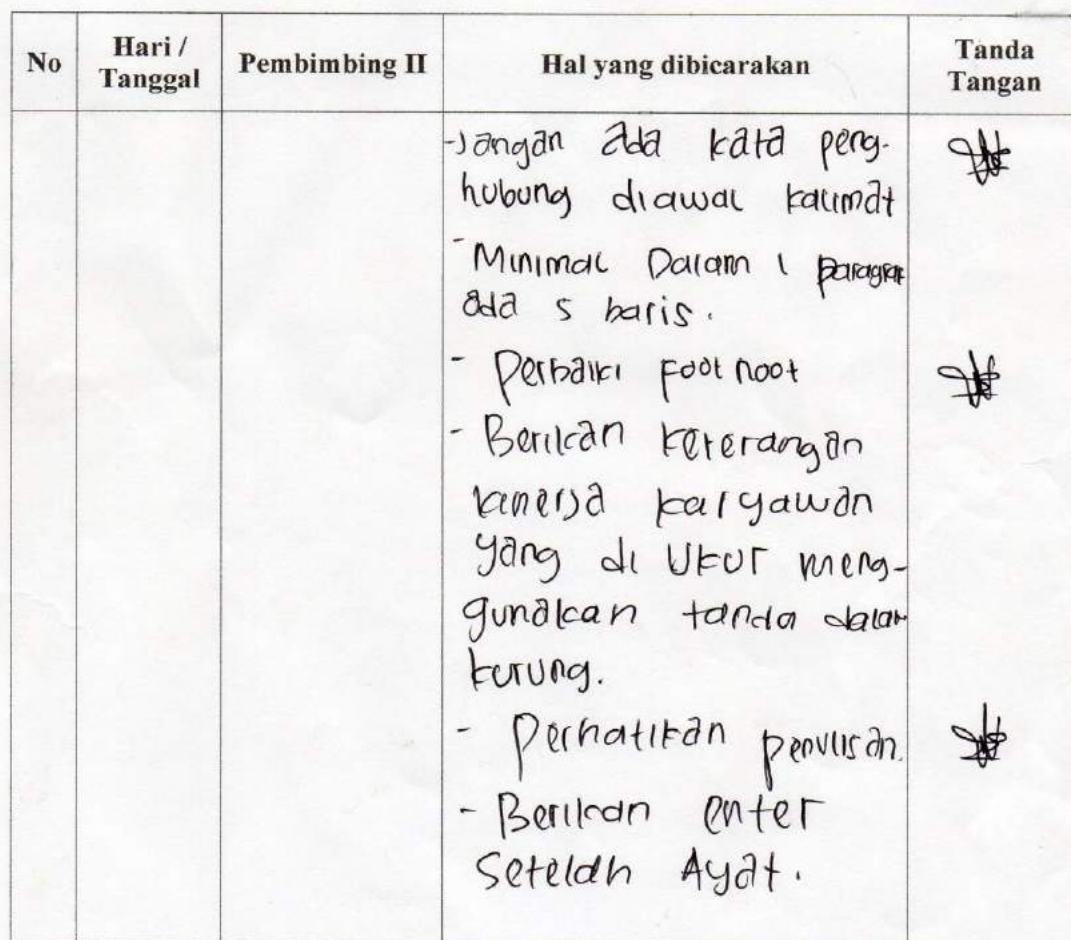 No Hari / Tanggal Pembimbing II Hal yang dibicarakan Tanda Tangan
-Jangan ada kata peng-
hubung diawal kalimat
- Minimal Dalam 1 paragraf
ada 5 baris.
- Perbaiki Foot noot
- Berikan keterangan
kinerja karyawan
yang di Ukur meng-
gunakan tanda dalam
kurung.
- Perhatikan penulisan.
- Berikan enter
Setelah Ayat.